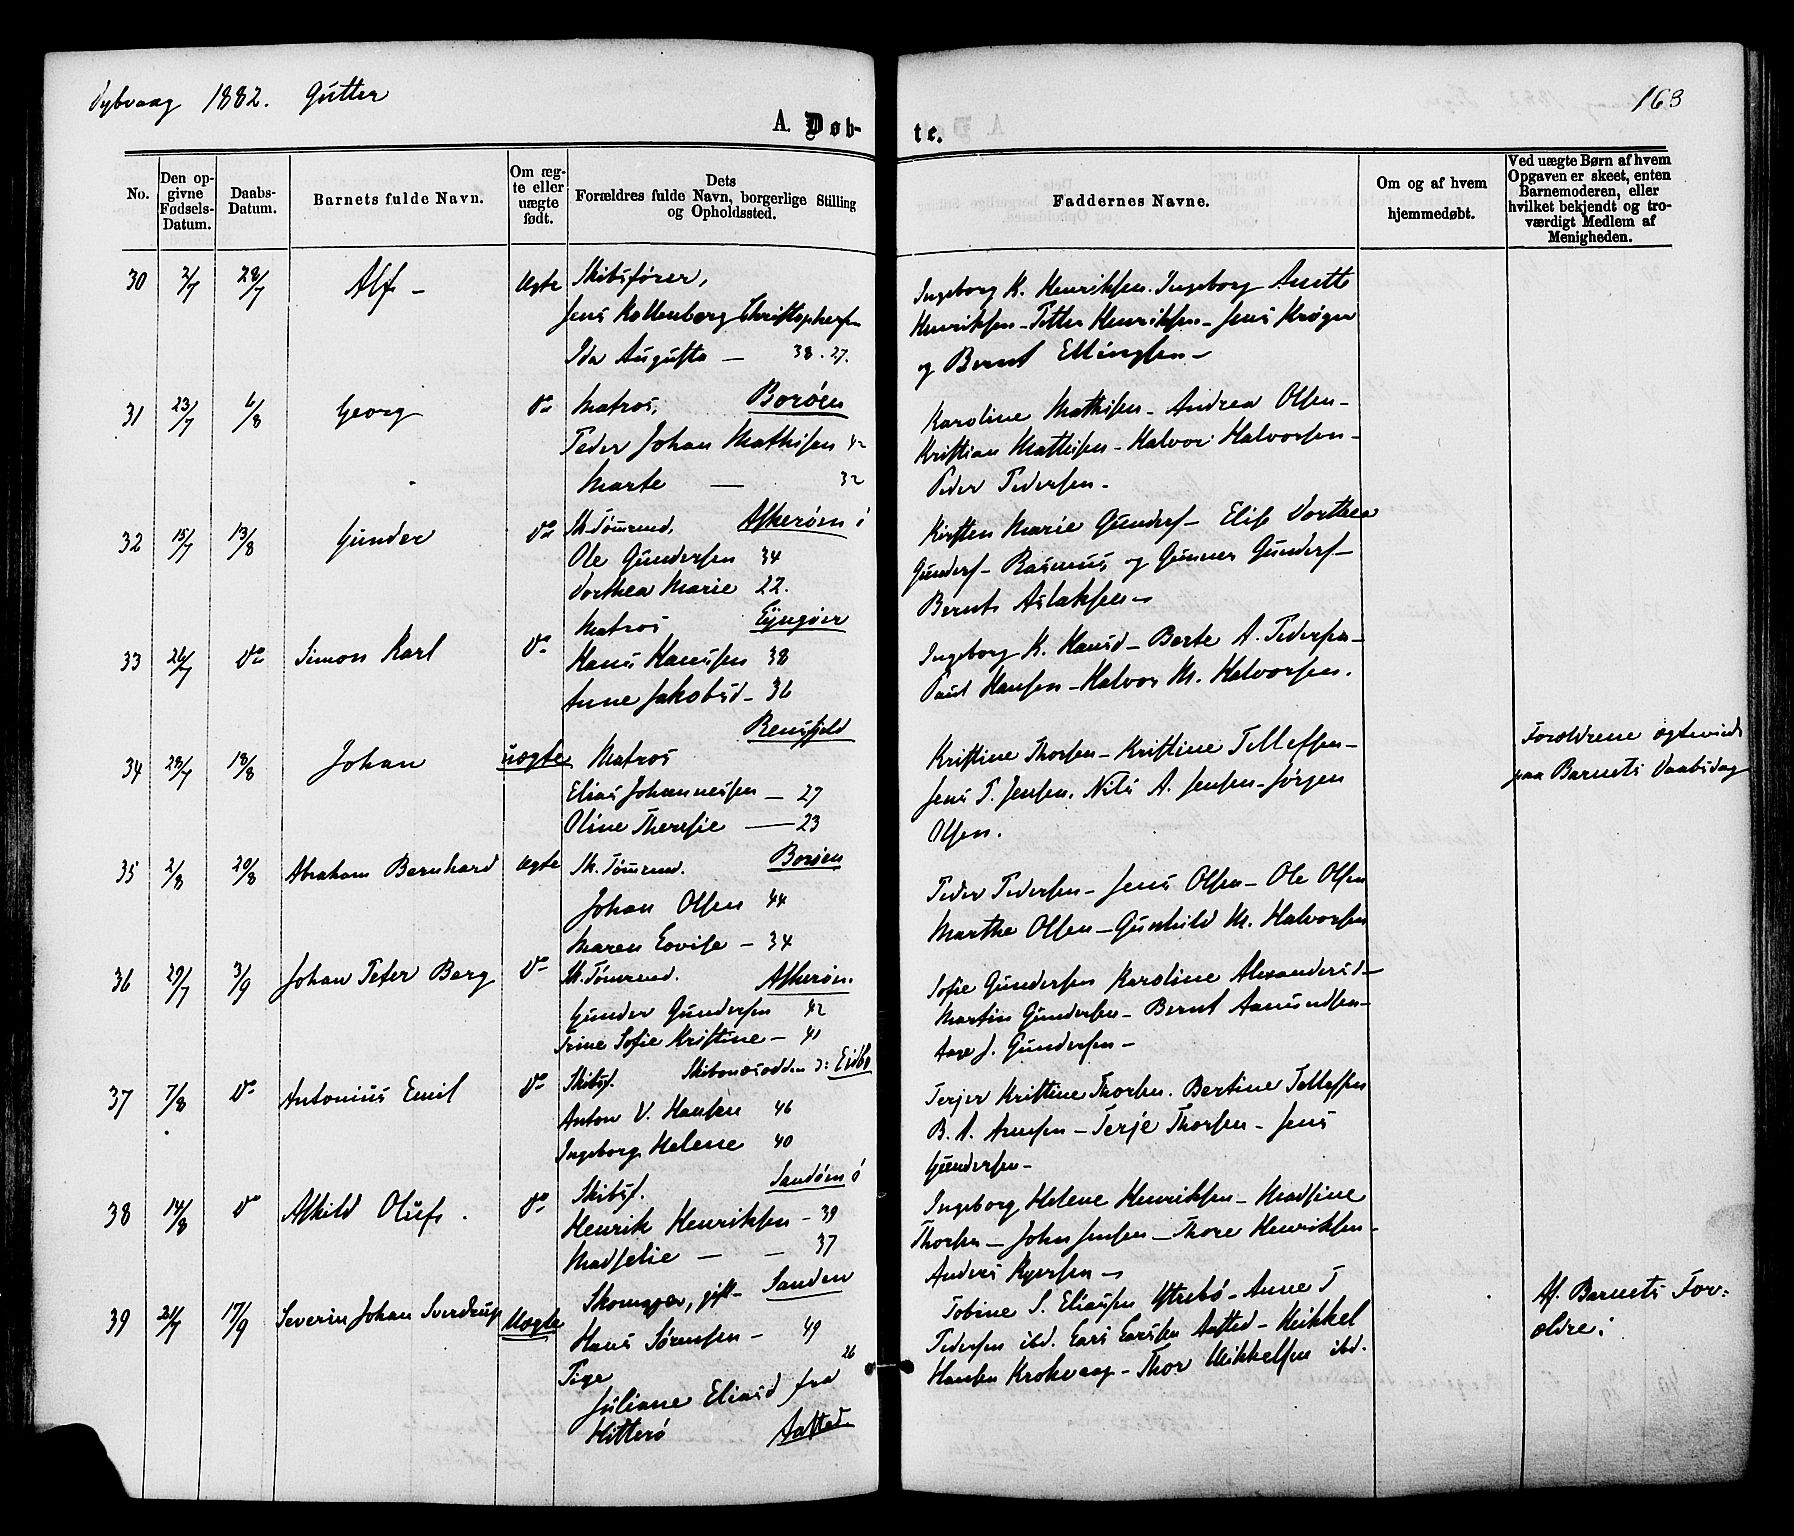 Dybvaag 1882. Gutter
163
A. Døb-
te.
No.
Den op-
givne
Fødsels-
Datum.
Daabs-
Datum.
Barnets fulde Navn.
Om æg-
te eller
uægte
født.
Dets
Forældres fulde Navn, borgerlige Stilling
og Opholdssted.
Faddernes Navne.
Om og af hvem
hjemmedøbt.
Ved uægte Børn af hvem
Opgaven er skeet, enten
Barnemoderen, eller
hvilket bekjendt og tro-
værdigt Medlem af
Menigheden.
30 2/7 28/7 Alf - Ægte Skibsfører,
Jens Kallenborg Christophersen
Ida Augusta — 38. 27.
Ingeborg K. Henriksen. Ingeborg Anette
Henriksen - Petter Henriksen - Jens Krøger
og Bernt Ellingsen -
31 23/7 6/8 Georg Do Matros, Borøen
Peder Johan Mathisen 42
Marte — 32
Karoline Mathisen - Andrea Olsen -
Kristian Mathisen - Halvor Halvorsen -
Peder Pedersen -
32 15/7 13/8 Gunder Do Sk. Tømmd. Askerøen
Ole Gundersen 34
Dorthea Marie 22.
Kirsten Marie Gunders - Elise Dorthea
Gunders - Rasmus og Gunner Gunders -
Bernt Aslaksen -
33 26/7 Do Simon Karl Do Matros Lyngøer
Hans Hansen 38
Anne Jakobsd - 36
Ingeborg K. Hansd - Berte A. Pedersen -
Paul Hansen - Halvor M. Halvorsen.
34 28/7 18/8 Johan uægte Matros Rensfjeld
Elias Johannessen — 27
Oline Theresie — 23
Kristine Thorsen - Kristine Tellefsen -
Jens T. Jensen. Nils A. Jensen - Jørgen
Olsen.
Forældrene ægteviede
paa Barnets Daabsdag
35 2/8 20/8 Abraham Bernhard Ægte Sk. Tømmd. Borøen
Johan Olsen 44
Maren Lovise - 34
Peder Pedersen - Jens Olsen - Ole Olsen
Marthe Olsen - Gunhild M. Halvorsen
36 29/7 3/9 Johan Peter Berg Do Sk. Tømmd. Askerøen.
Gunder Gundersen 42
Trine Sofie Kristine - 41
Sofie Gundersen Karoline Alexandersd -
Martin Gundersen - Bernt Aamundsen -
Aase J. Gundersen -
37 7/8 Do Antonius Emil Do Skibsf. Eidbo
Anton V. Hansen 46
Ingeborg Helene 40
Terjer Kristine Thorsen. Bertine Tellefsen
B. A. Arnesen - Terje Thorsen - Jens
Gundersen -
38 14/8 Do Askild Oluf. Do Skibsf. Sandøen
Henrik Henriksen - 39
Madselie — — 37
Ingeborg Helene Henriksen - Madsine
Thorsen - John Jensen - Thore Henriksen -
Anders Ryersen -
39 21/7 17/9 Severin Johan Sverdrup Uægte Skomager, gift - Sanden
Hans Sørensen - 49
Pige 26
Juliane Eliasd fra
Hitterø Aasted
Tobine S. Eliassen Ytrebø - Anne T
Pedersen ibd. Lars Larssen Aasted - Mikkel
Hansen Krokvaag - Thor Mikkelsen ibd.
Af Barnets For-
ældre.